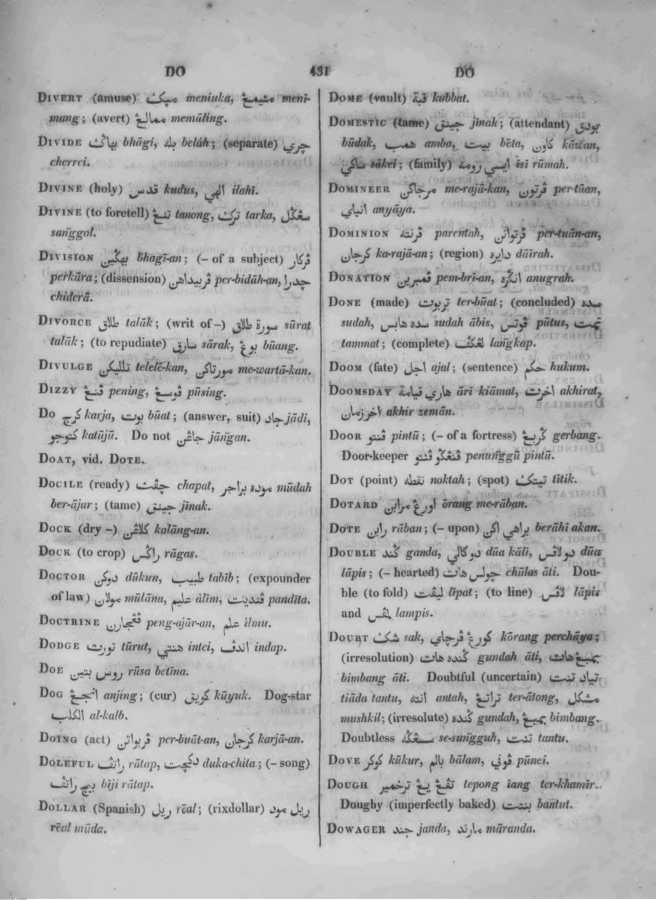 DO 431 DO
DIVERT (amuse) meniuka, meni-
mang; (avert) memāling.
DIVIDE بهاگي bhāgi, بله belāh; (separate) چري
cherrei.
DIVINE (holy) قدس kudus, الهي ilahī.
DIVINE (to foretell) تنغ tanong, ترك tarka,
sanggol.
DIVISION bhagī-an; (– of a subject) ڤركار
perkāra; (dissension) ڤربيداهن per-bidāh-an, چدرا
chiderā.
DIVORCE طلاق talāk; (writ of –) سورة طلاق sūrat
talāk; (to repudiate) سارق sārak, بوڠ būang.
DIVULGE telelē-kan, مورتاكن me-wartā-kan.
DIZZY ڤنڠ pening, ڤوسڠ pūsing.
DO كرج karja, بوت būat; (answer, suit) جاد jādi,
كتوجو katūjū. Do not جاڠن jāngan.
DOAT, vid. DOTE.
DOCILE (ready) چڤت chapat, موده براجر mūdah
ber-ājar; (tame) جينق jinak.
DOCK (dry –) كالڠن kalāng-an.
DOCK (to crop) راڬس rāgas.
DOCTOR دوكن dūkun, طبيب tabīb; (expounder
of law) مولان mūlāna, عليم ālim, ڤنديت pandīta.
DOCTRINE ڤڠاجران peng-ajār-an, علم ilmu.
DODGE تورت tūrut, هنتي intei, اندڤ indap.
DOE روس بتين rūsa betīna.
DOG انجڠ anjing; (cur) كويق kūyuk. Dog-star
الكلب al-kalb.
DOING (act) ڤربواتن per-buāt-an, كرجان karjā-an.
DOLEFUL راتڤ rātap, دكچيت duka-chita; (– song)
بيج راتڤ biji rātap.
DOLLAR (Spanish) ريل rēal; (rixdollar) ريل مود
rēal mūda.
DOME (vault) قبة kubbat.
DOMESTIC (tame) جينق jinak; (attendant) بودق
būdak, همب amba, بيت bēta, كاون kāwan,
ساكي sākei; (family) ايسي رومه īsi rūmah.
DOMINEER مرجاكن me-rajā-kan, ڤرتون per-tūan,
انياي anyāya.
DOMINION ڤرنته parentah, ڤرتوانن per-tuān-an,
كرجان ka-rajā-an; (region) دايره dāirah.
DONATION ڤمبرين pem-brī-an, انڬره anugrah.
DONE (made) تربوت ter-būat; (concluded) سده
sudah, سده هابس sudah ābis, ڤوتس pūtus, تمت
tammat; (complete) لڠكڤ langkap.
DOOM (fate) اجل ajal; (sentence) حكم hukum.
DOOMSDAY هاري قيامة āri kiāmat, اخرت akhirat,
اخرزمان akhir zemān.
DOOR ڤنتو pintū; (– of a fortress) ڬربڠ gerbang.
Door-keeper ڤنڠڬو ڤنتو penunggū pintū.
DOT (point) نقطه noktah; (spot) تيتك titik.
DOTARD اورڠ مرابن ōrang me-rāban.
DOTE رابن rāban; (– upon) براهي اكن berāhi akan.
DOUBLE ڬند ganda, دوكالي dūa kāli, دولاڤس dūa
lāpis; (– hearted) چولس هات chūlas āti. Dou-
ble (to fold) ليڤت līpat; (to line) لاڤس lāpis
and لمڤس lampis.
DOUBT شك sak, كورڠ ڤرچاي kōrang perchāya;
(irresolution) ڬنده هات gundah āti,
bimbang āti. Doubtful (uncertain) تياد تنت
tiāda tantu, انته antah, تراتڠ ter-ātong, مشكل
mushkil; (irresolute) ڬنده gundah, بمبڠ bimbang.
Doubtless سسڠڬه se-sungguh, تنت tantu.
DOVE كوكر kūkur, بالم bālam, ڤوني pūnei.
DOUGH تڤڠ يڠ ترخمير tepong īang ter-khamīr.
Doughy (imperfectly baked) بنتت bantut.
DOWAGER جند janda, مارند māranda.